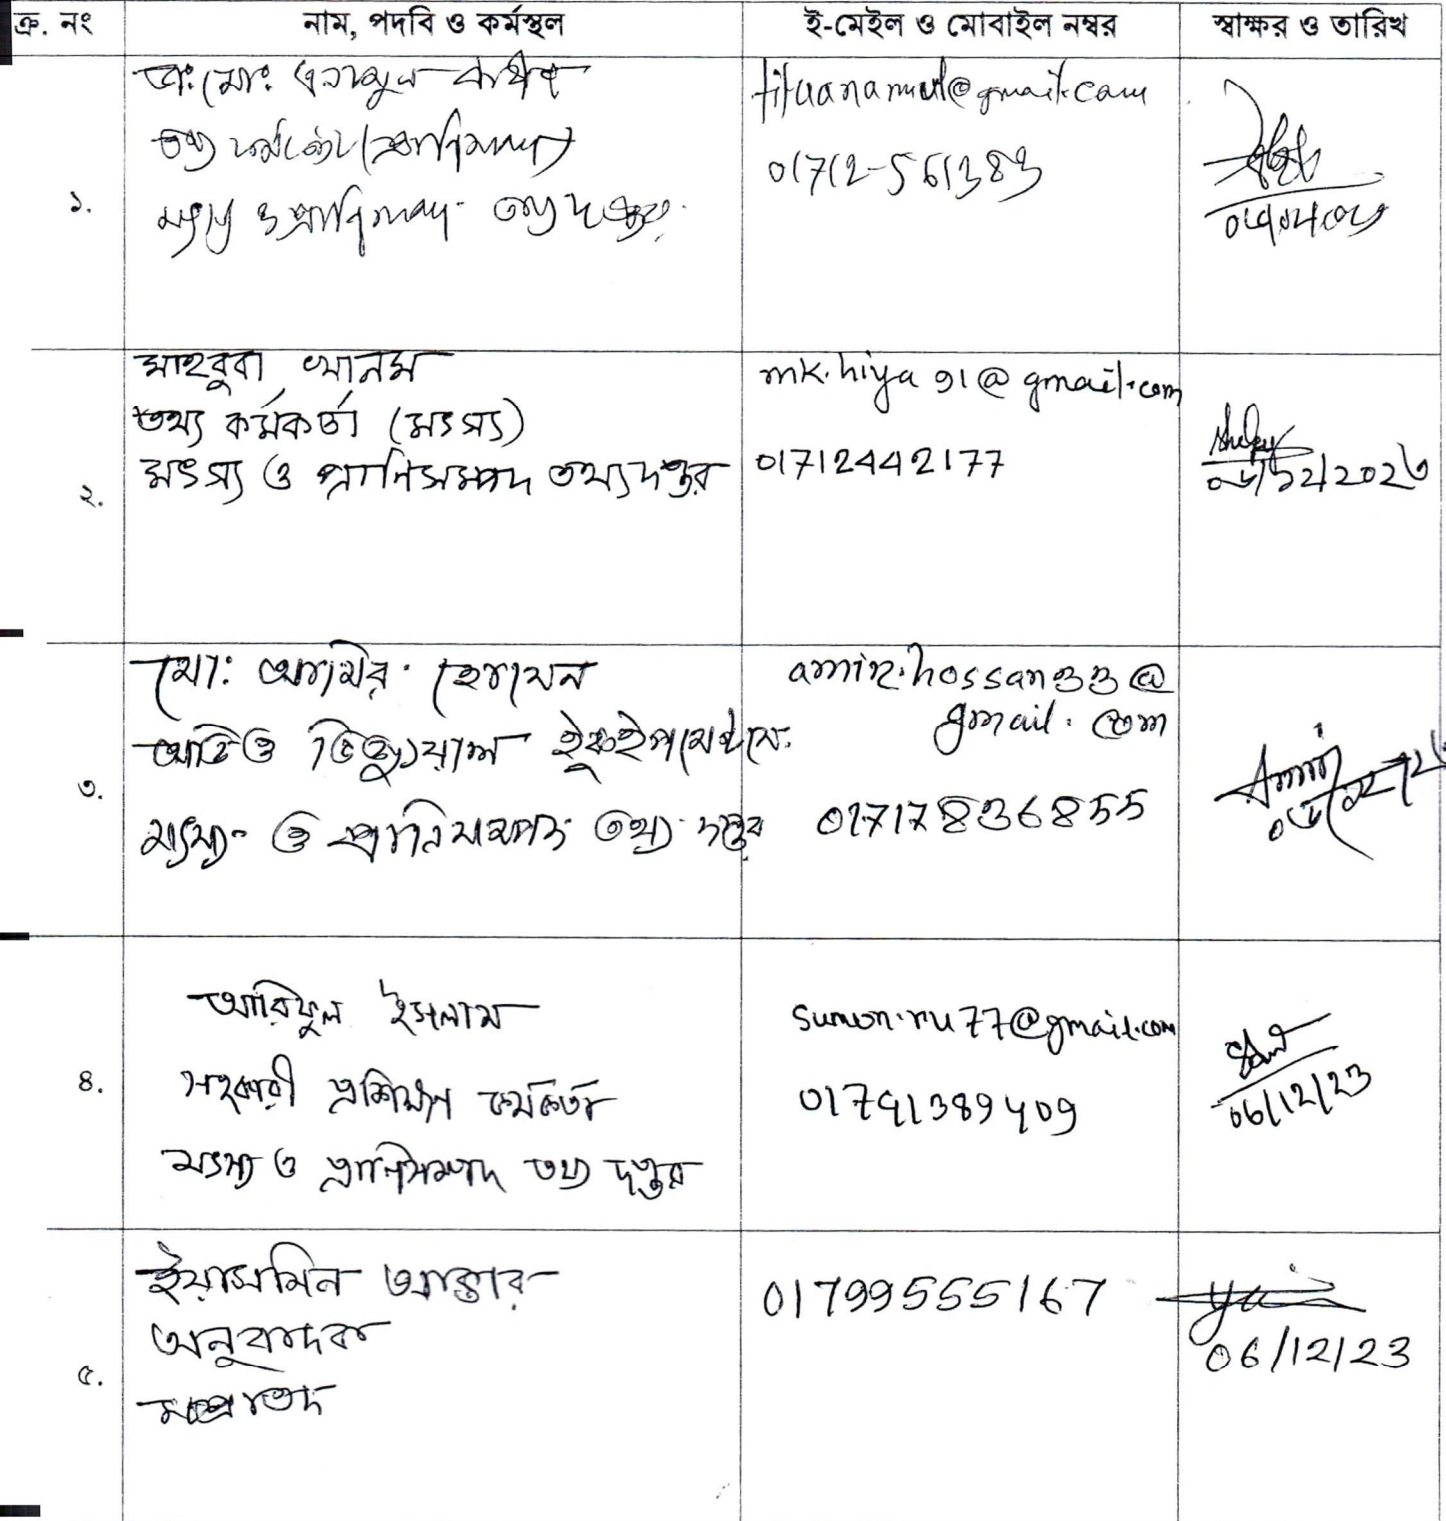 ক্র. নং নাম, পদবি ও কর্মস্থল ই-মেইল ও মোবাইল নম্বর স্বাক্ষর ও তারিখ
১.
ডাঃ মোঃ এনামুল কবীর
তথ্য কর্মকর্তা (প্রাণিসম্পদ)
মৎস্য ও প্রাণিসম্পদ তথ্য দপ্তর
01712-561383
২.
মাহবুবা খানম
তথ্য কর্মকর্তা (মৎস্য)
মৎস্য ও প্রাণিসম্পদ তথ্য দপ্তর
mk.hiya91@gmail.com
01712442177
০৬/১২/২০২৩
৩.
মো: আমির হোসেন
অডিও ভিজ্যুয়াল
মৎস্য ও প্রাণিসম্পদ তথ্য দপ্তর
amir.hossan33@
gmail.com
01717836855
Amir
৪.
আরিফুল ইসলাম
সহকারী প্রশিক্ষণ কর্মকর্তা
মৎস্য ও প্রাণিসম্পদ তথ্য দপ্তর
sumon.ru77@gmail.com
06/12/23
৫.
ইয়াসমিন আক্তার
অনুবাদক
মপ্রাতদ
01799555167
06/12/23